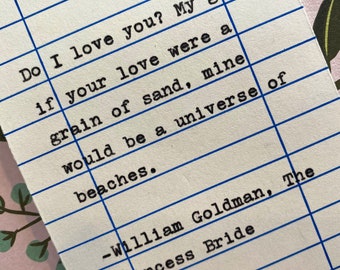 Do I love you? My
if your love were a
grain of sand, mine
would be a universe of
beaches.
-William Goldman, The
Bride